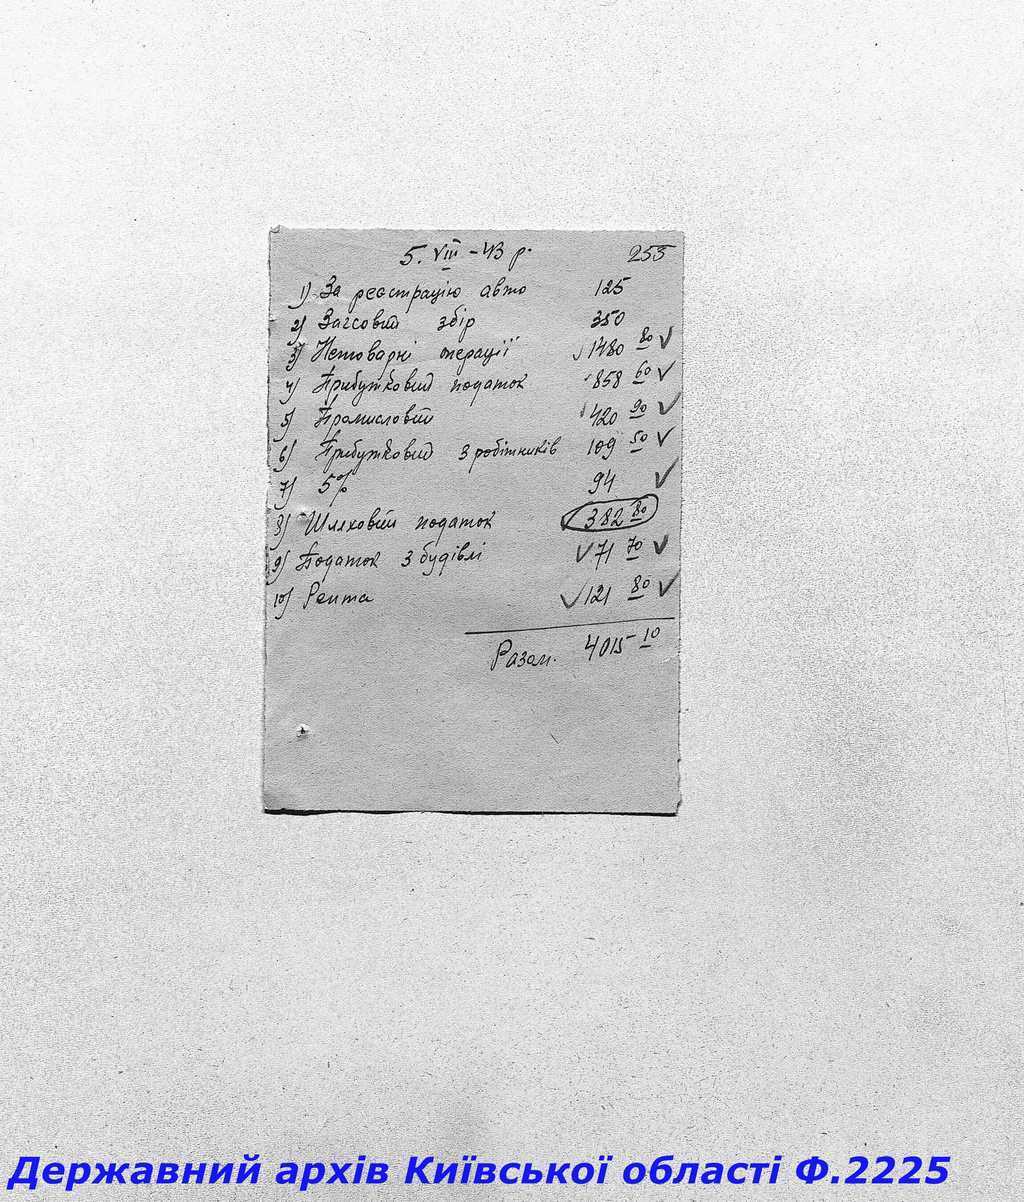 5. VIII - 43 р. 253
1) За реєстрацію авто 125
2) Загсовий збір 350
3) Нетоварні операції 1480 80
4) Прибутковий податок 858 60
5) Промисловий 420 90
6) Прибутковий з робітників 109 50
7) 5% 94
8) Шляховий податок 382 80
9) Податок з будівлі 71 70
10) Рента 121 80
Разом. 4015 10
Державний архів Київської області Ф.2225